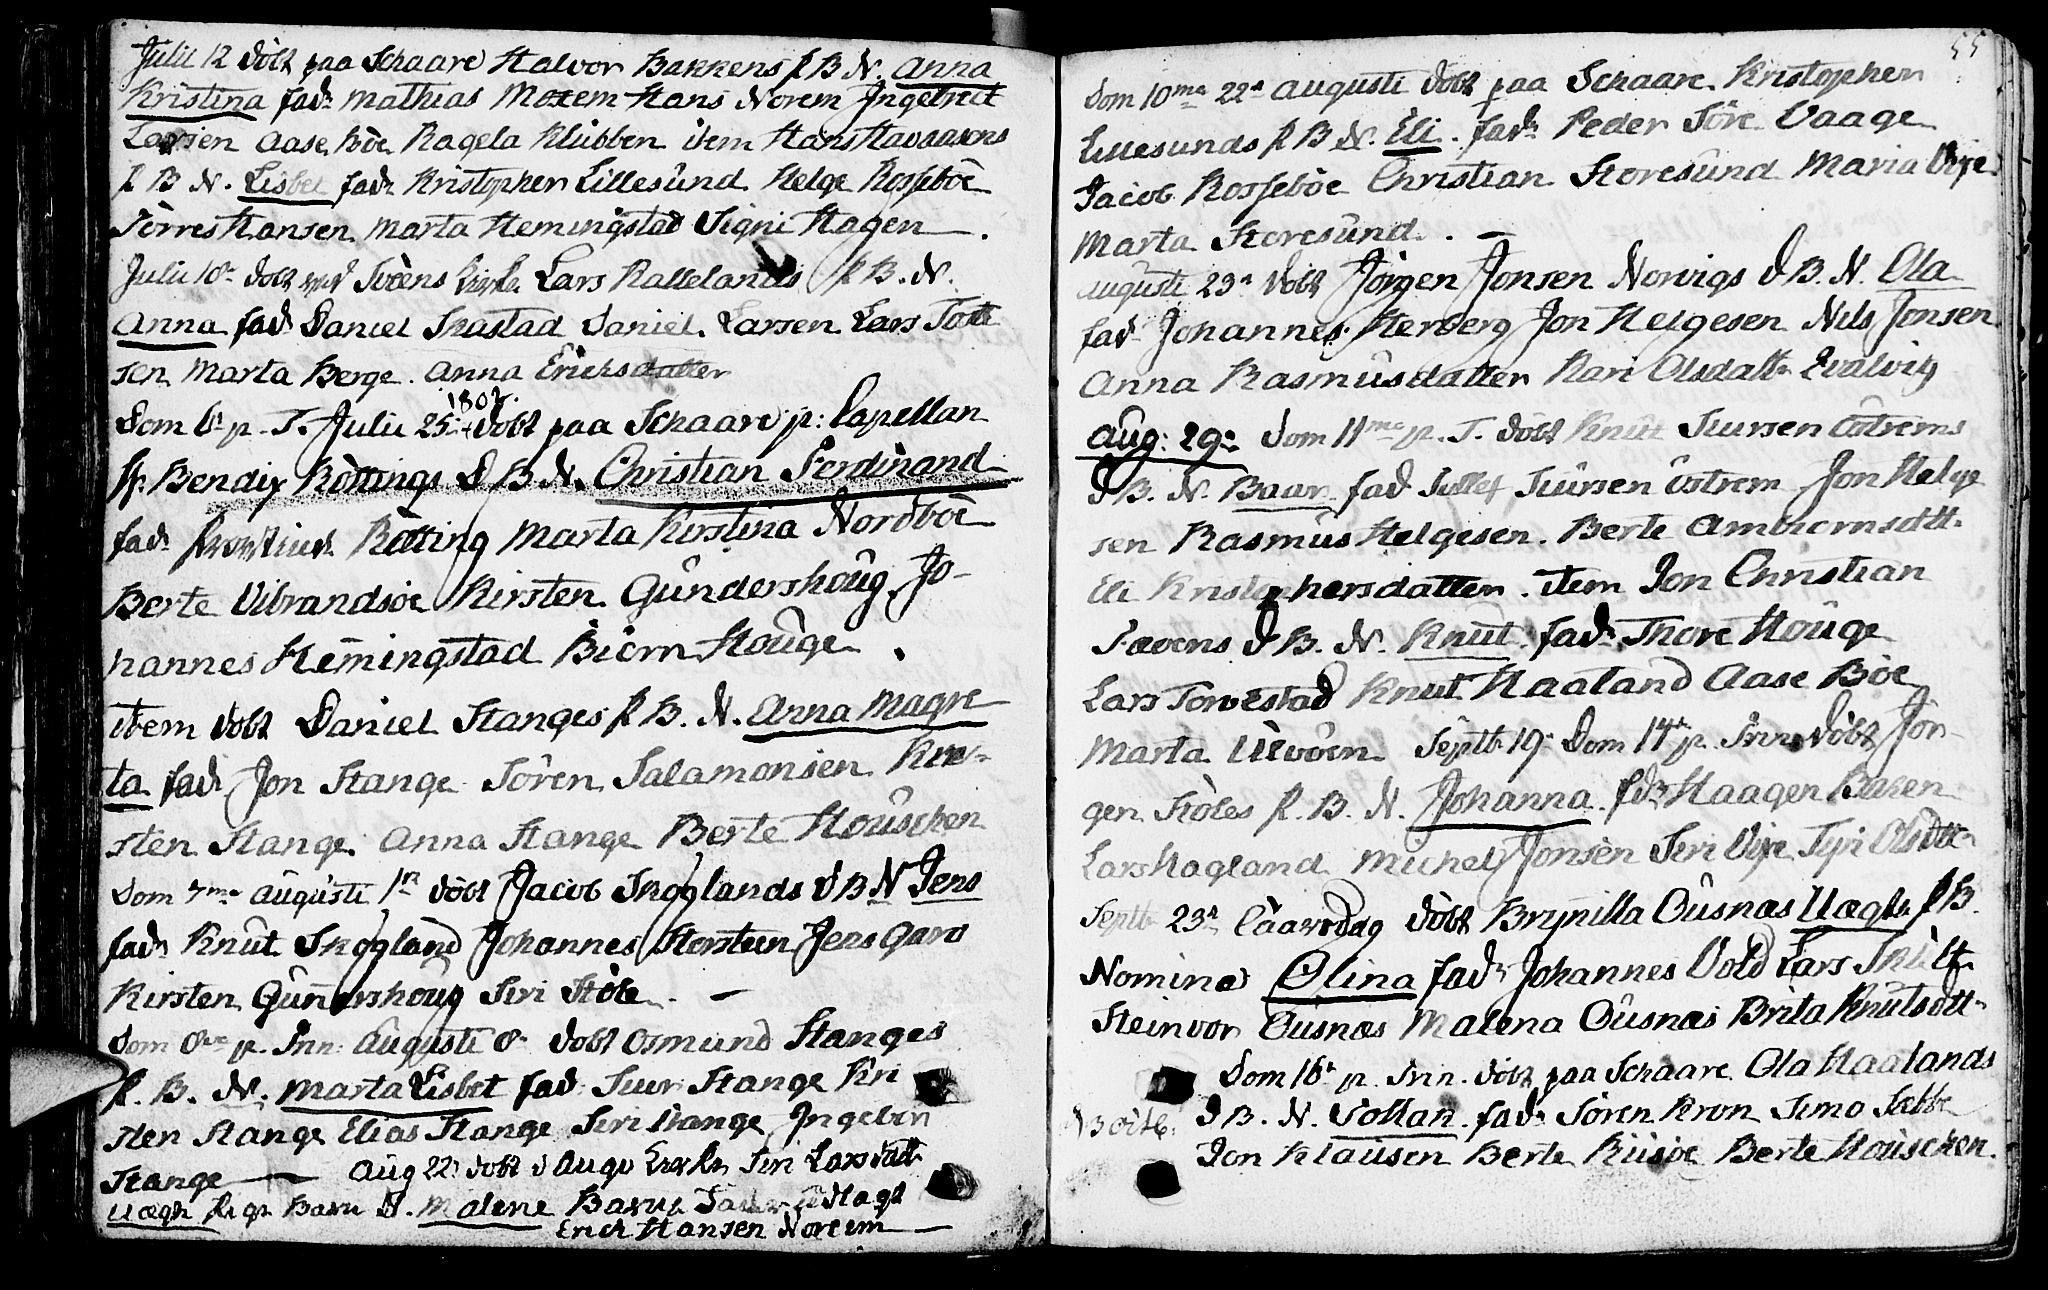 Julii 12 döbt paa Schaare Halvor Bakkens P B N. Anna
Kristina fadr Mathias Hans Norem Ingebrect
Larsen Aase Böe Ragela Klubben item Hans
P B N. Lisbet fadr Kristopher Lillesund Helge Rosseböe
Törres Hansen Marta Hemingstad Signi Hagen
Julii 18 döbt ved Kirke Lars Rallelands P B. N.
Anna fadr Daniel Skastad Daniel Larsen Lars Tott
sen Marta Berge. Anna Ericksdatter
1802.
Dom 6 p. T. Julii 25 döbt paa Schaare p: Capellan
Hr. Bendix Röttings D B N. Christian Ferdinand
fadr Rötting Marta Kirstina Nordböe
Berte Vibrandsöe Kirsten Gundershoug Jo-
hannes Hemingstad Biörn Houge
item döbt Daniel Stanges P B. N. Anna Magre
ta fadr Jon Stange Sören Salamonsen Kir-
sten Stange Anna Stange Berte Housken
Dom 7me Augusti 1 döbt Jacob Skoglands D B N Jens
fadr Knut Skogland Johannes Storsteen Jens Gard
Kirsten Gundershoug Siri Stöle
Dom 8ve p. Trin. Augusti 8 döbt Osmund Stanges
P. B. N. Marta Lisbet fadr Siur Stange Kri
sten Stange Elias Stange Siri Stange Ingebor
Stange Aug 22 döbt i Augv Kirke Siri Larsdatt
uægte Pige Barn N. Malene Barne Fader
Erich Hansen Noreim
55
Dom 10me 22 Augusti döbt paa Schaare Kristopher
Lillesunds P B N. Eli. fadr Peder Töre Vaage
Jacob Rosseböe Christian Storesund Maria
Marta Storesund.
Augusti 23 döbt Jörgen Jonsen Norvigs D B. N. Ola
fadr Johannes Jon Helgesen Nils Jonsen
Anna Rasmusdatter Kari Olsdattr
Aug: 29 Dom 11me p. T. döbt Knut Siursen Östrems
D B. N. Baar fadr Siursen Östrem Jon Helge
sen Rasmus Helgesen. Berte
Eli Kristophersdatter. item Jon Christian
D B. N. Knut fadr Thore Houge
Lars Torvestad Knut Haaland Aase Böe
Marta Septbr 19 Dom 14 p. Trin döbt Jör-
gen Stöles P. B. N. Johanna. fadr Haagen
Lars Hagland Michel Jonsen Siri Olsdtt
Septbr 23 Laaverdag döbt Brynilla Ousnæs Uægte P B.
Nomine Olina fadr Johannes Vold Lars
Steinvor Ousnæs Malena Ousnæs Brita Knutsdtt
Dom 16 p. Trin. döbt paa Schaare Ola Haalands
D B. N. fadr Sören Kron Simo
Jon Klausen Berte Berte Housken.